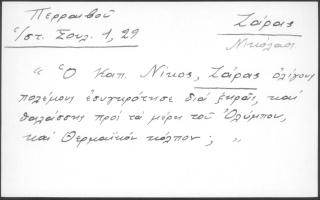 Περραιβοῦ
Ζάρας
Ἱστ. Σουλ. 1, 29
Νικόλαος
" Ὁ Καπ. Νίκος, Ζάρας ὀλίγους
πολέμους ἐσυγκρότησε διά ξηρᾶς, καί
θαλάσσης πρός τά μέρη τοῦ Ὀλύμπου,
καί Θερμαϊκόν κόλπον ; "